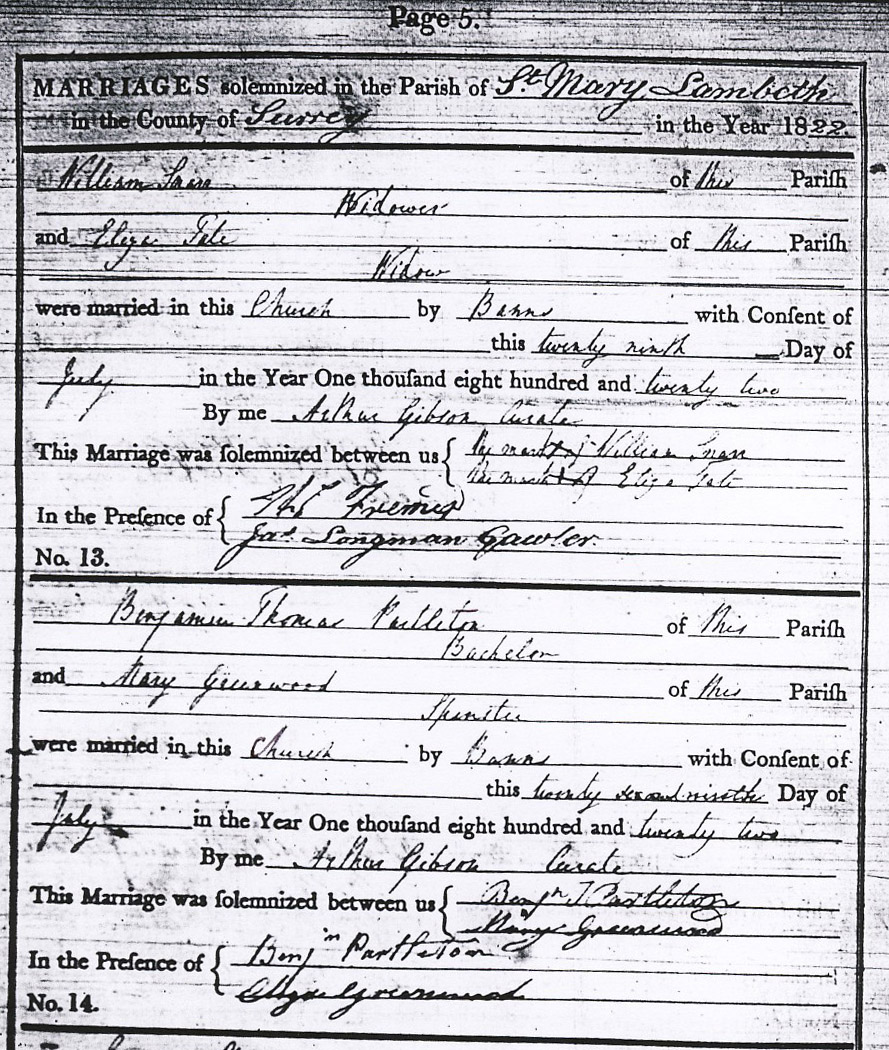 Page 5.
MARRIAGES solemnized in the Parish of St Mary Lambeth
in the County of Surrey in the Year 1822.
William of this Pariſh
Widower
and Eliza Tate of this Pariſh
Widow
were married in this Church by Banns with Conſent of
this twenty ninth Day of
July in the Year One thouſand eight hundred and twenty two
By me Arthur Gibson Curate
This Marriage was ſolemnized between us { The mark of William
The mark of Eliza Tate
In the Preſence of {
Jas Longman Gawler.
No. 13.
Benjamin Thomas Partleton of this Pariſh
Bachelor
and Mary Greenwood of this Pariſh
Spinster
were married in this Church by Banns with Conſent of
this twenty Day of
July in the Year One thouſand eight hundred and twenty two
By me Arthur Gibson Curate
This Marriage was ſolemnized between us { Benjn T Partleton
Mary Greenwood
In the Preſence of { Benjn Partleton
Eliza Greenwood
No. 14.